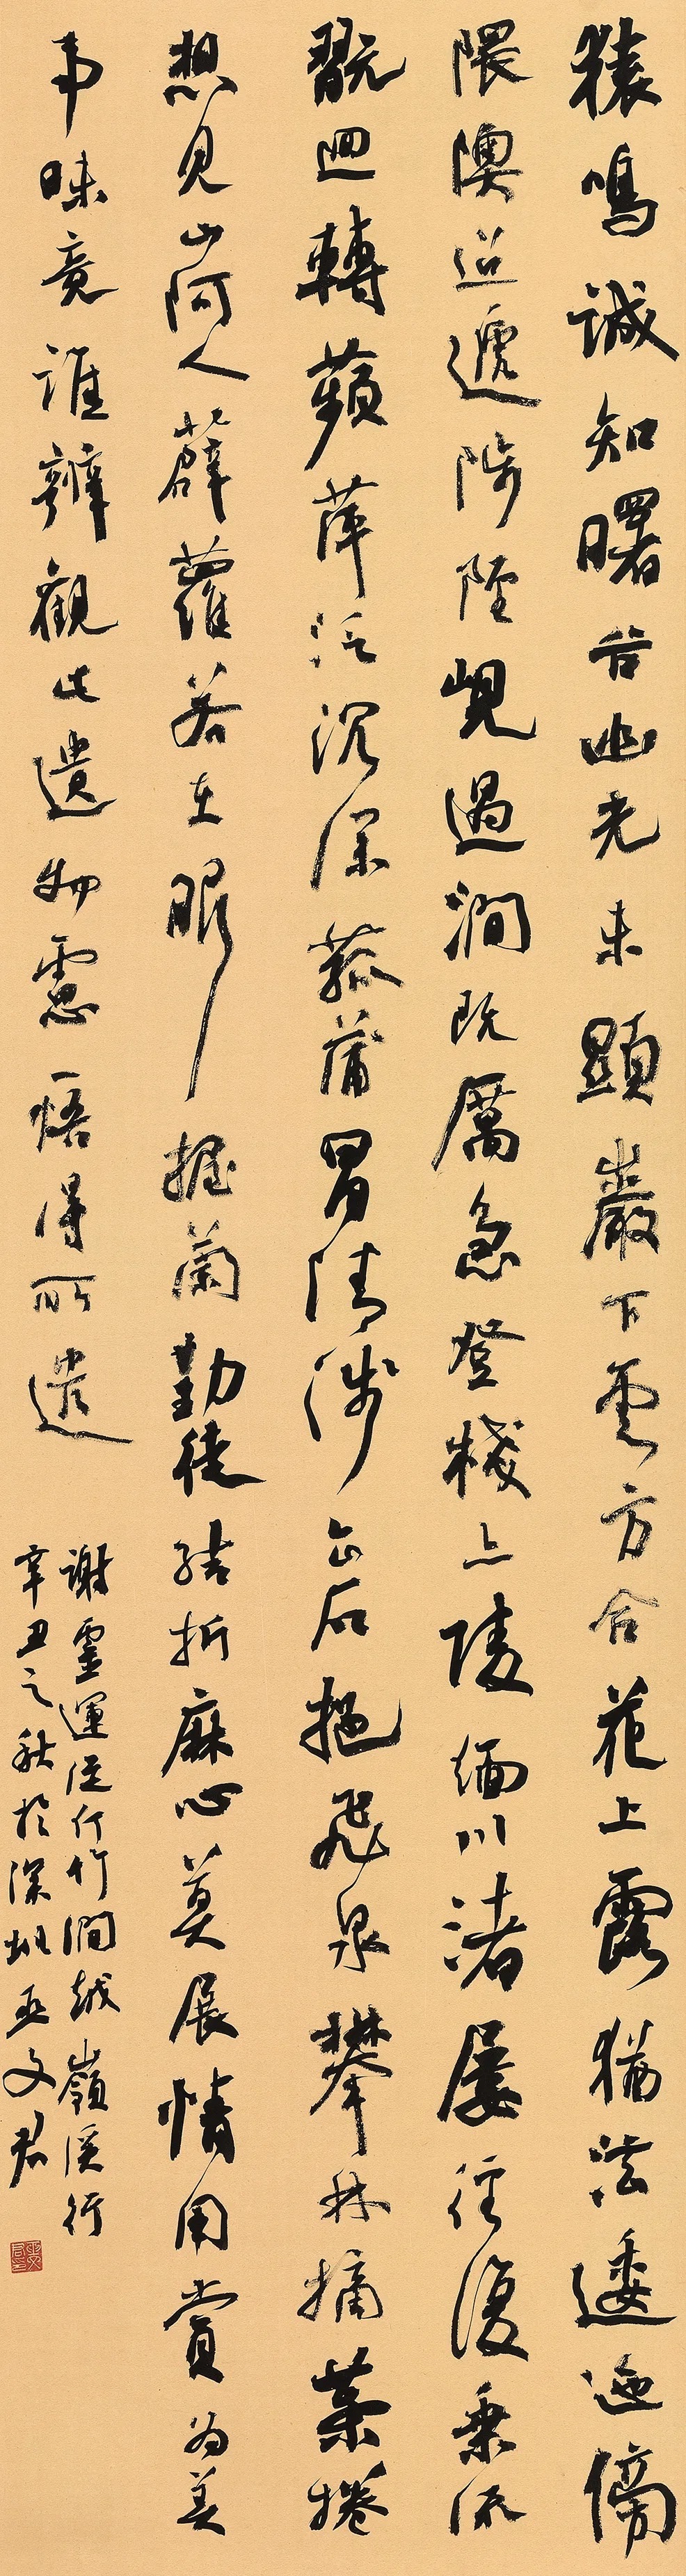 猿鳴誠知曙谷幽光未顯巖下雲方合花上露猶泫逶迤傍
隈隩迢遞陟陘峴過澗既厲急登棧亦陵緬川渚屢徑復乘流
翫迴轉蘋萍泛沉深菰蒲冒清淺企石挹飛泉攀林摘葉捲
想見山阿人薜蘿若在眼握蘭勤徒結折麻心莫展情用賞為美
事昧竟誰辨觀此遺物慮悟得所遣
謝靈運從斤竹澗越嶺溪行
辛丑之秋於深圳亞文君